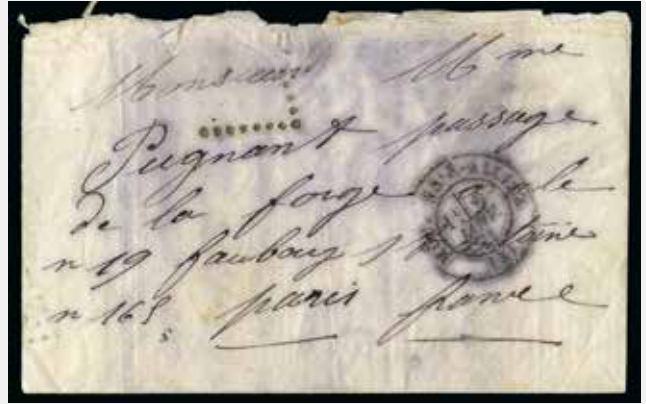 Monsieur Mme
Pugnant passage
de la forge
n 19 faubourg st Antoine
n 165 paris france